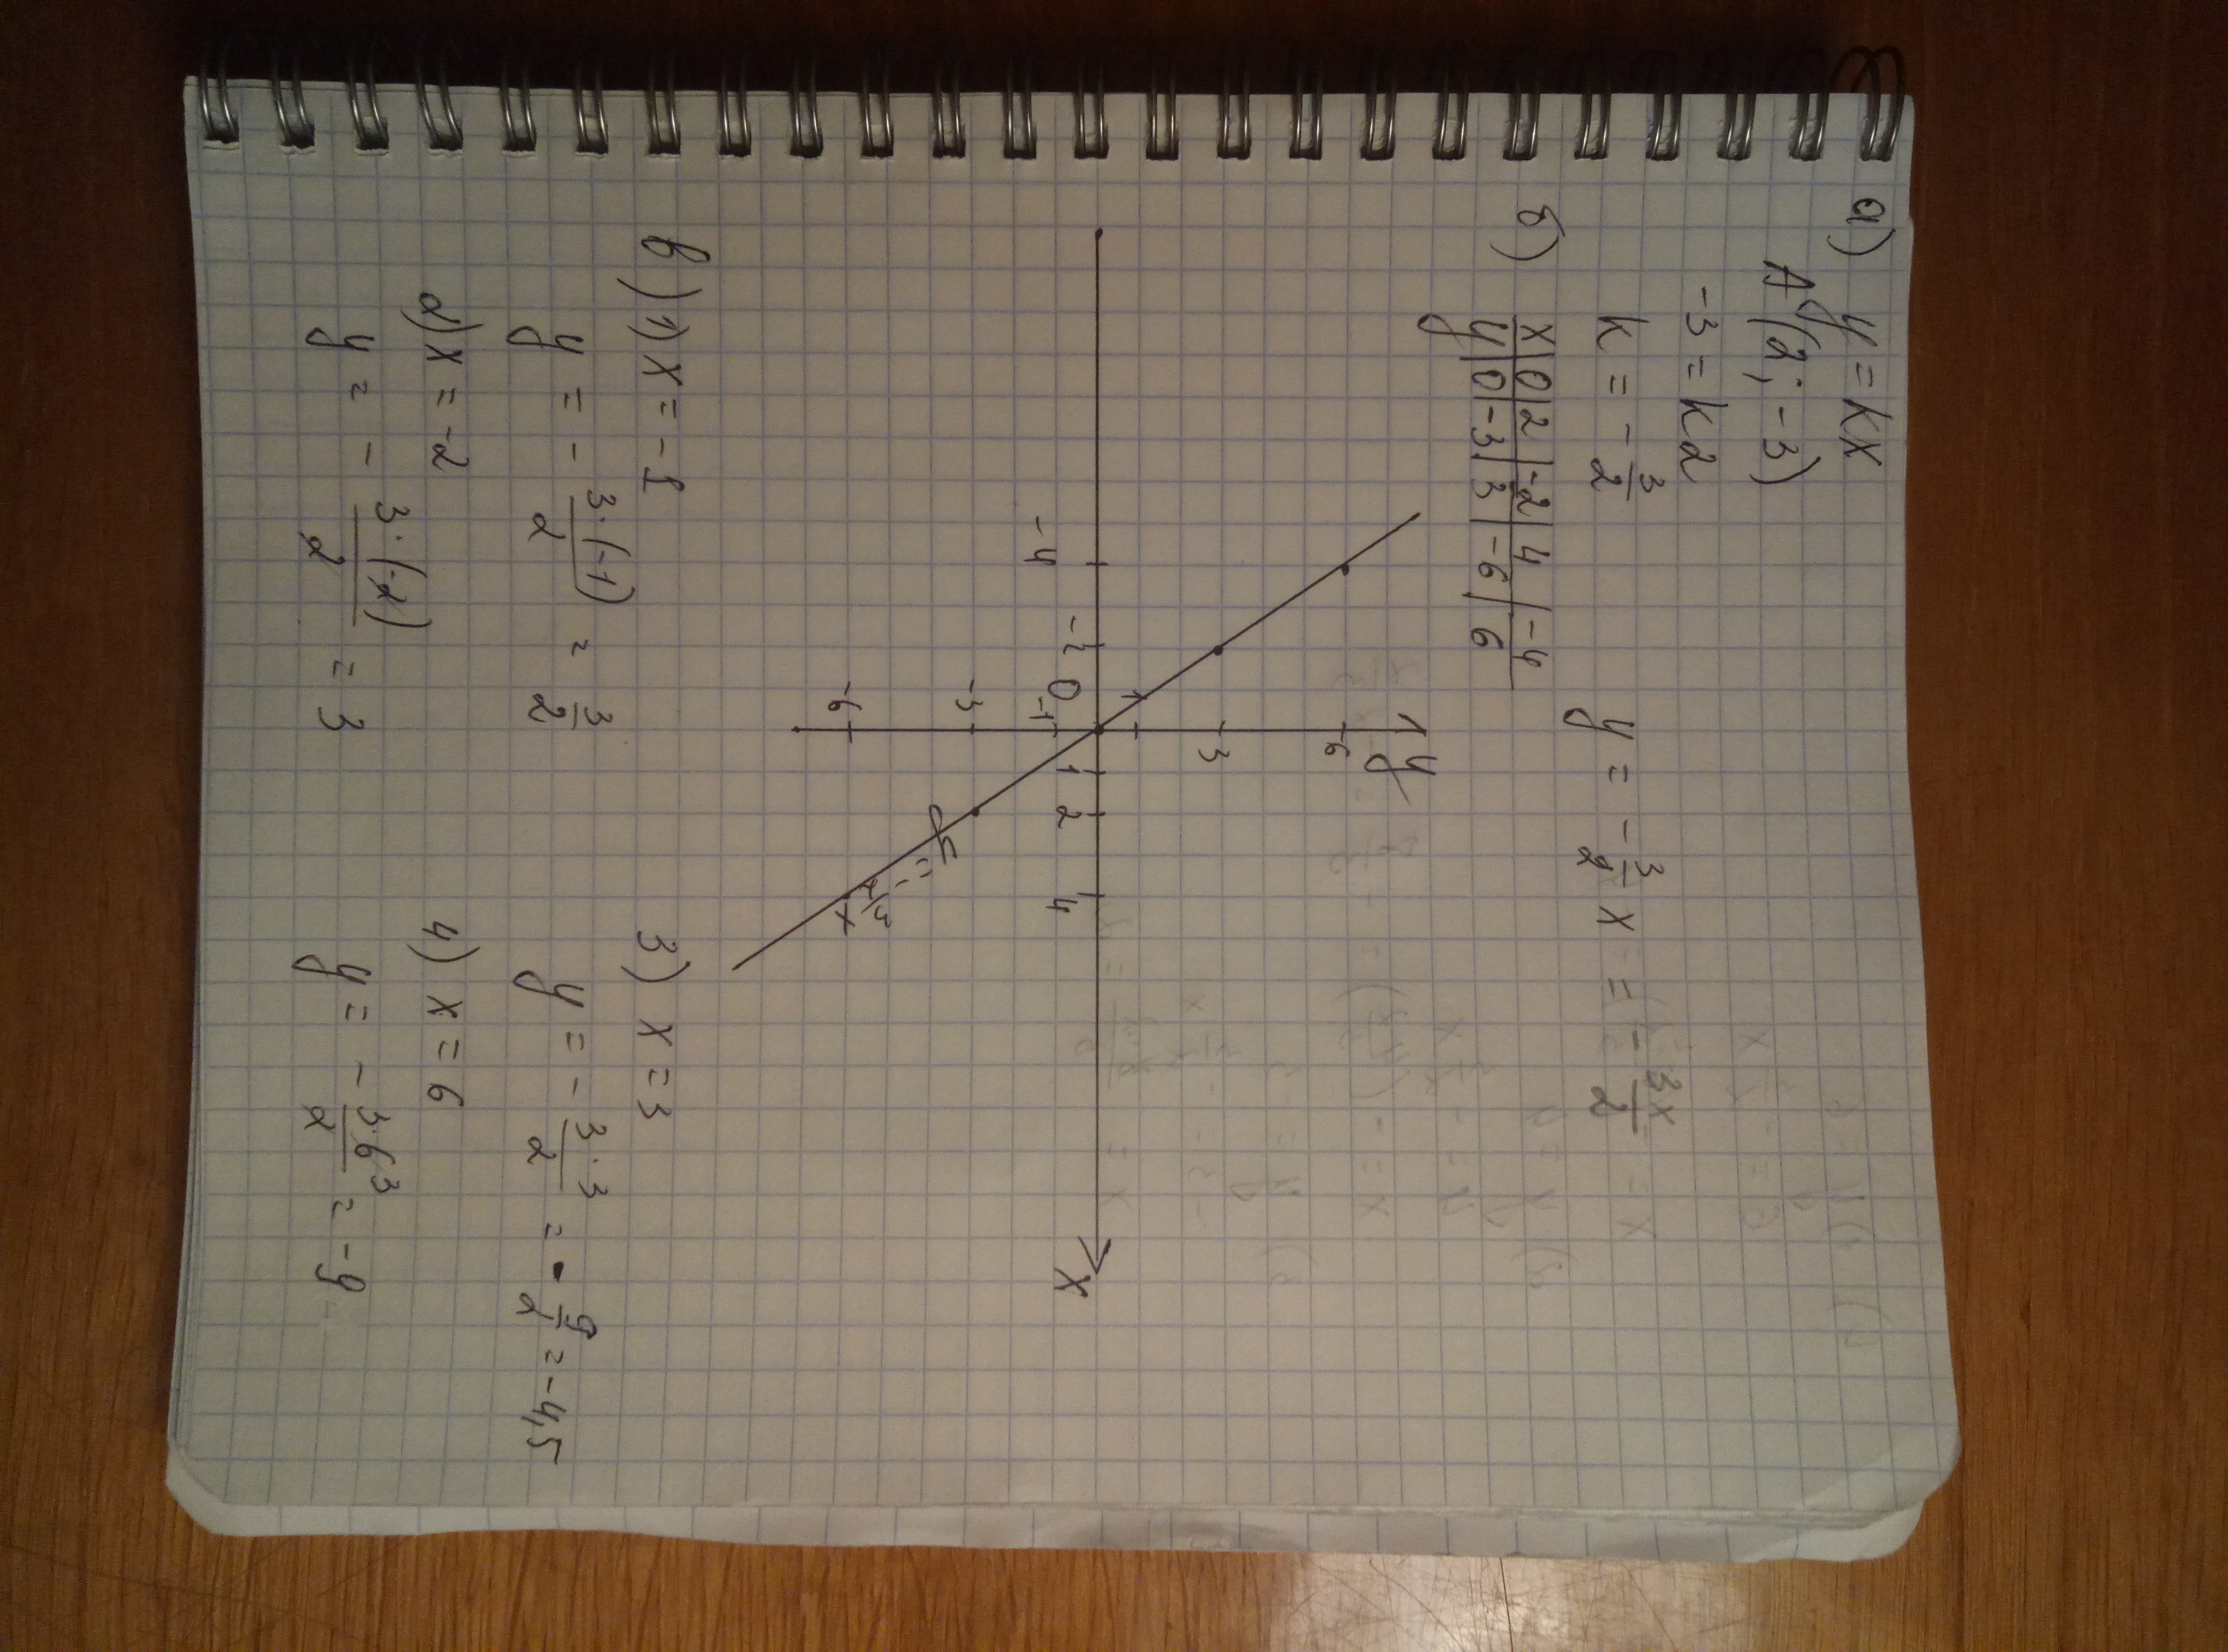 а) y = kx
A(2; -3)
-3 = k2
k = -3/2    y = -3/2 x = -3x/2
б) x | 0 | 2 | -2 | 4 | -4
y | 0 | -3 | 3 | -6 | 6
y
6
3
1
-4 -2 0 1 2 4 x
-1
-3
y = -3/2 x
-6
в) 1) x = -1    3) x = 3
y = - 3·(-1)/2 = 3/2    y = - 3·3/2 = - 9/2 = -4,5
2) x = -2    4) x = 6
y = - 3·(-2)/2 = 3    y = - 3·6 3/2 = -9